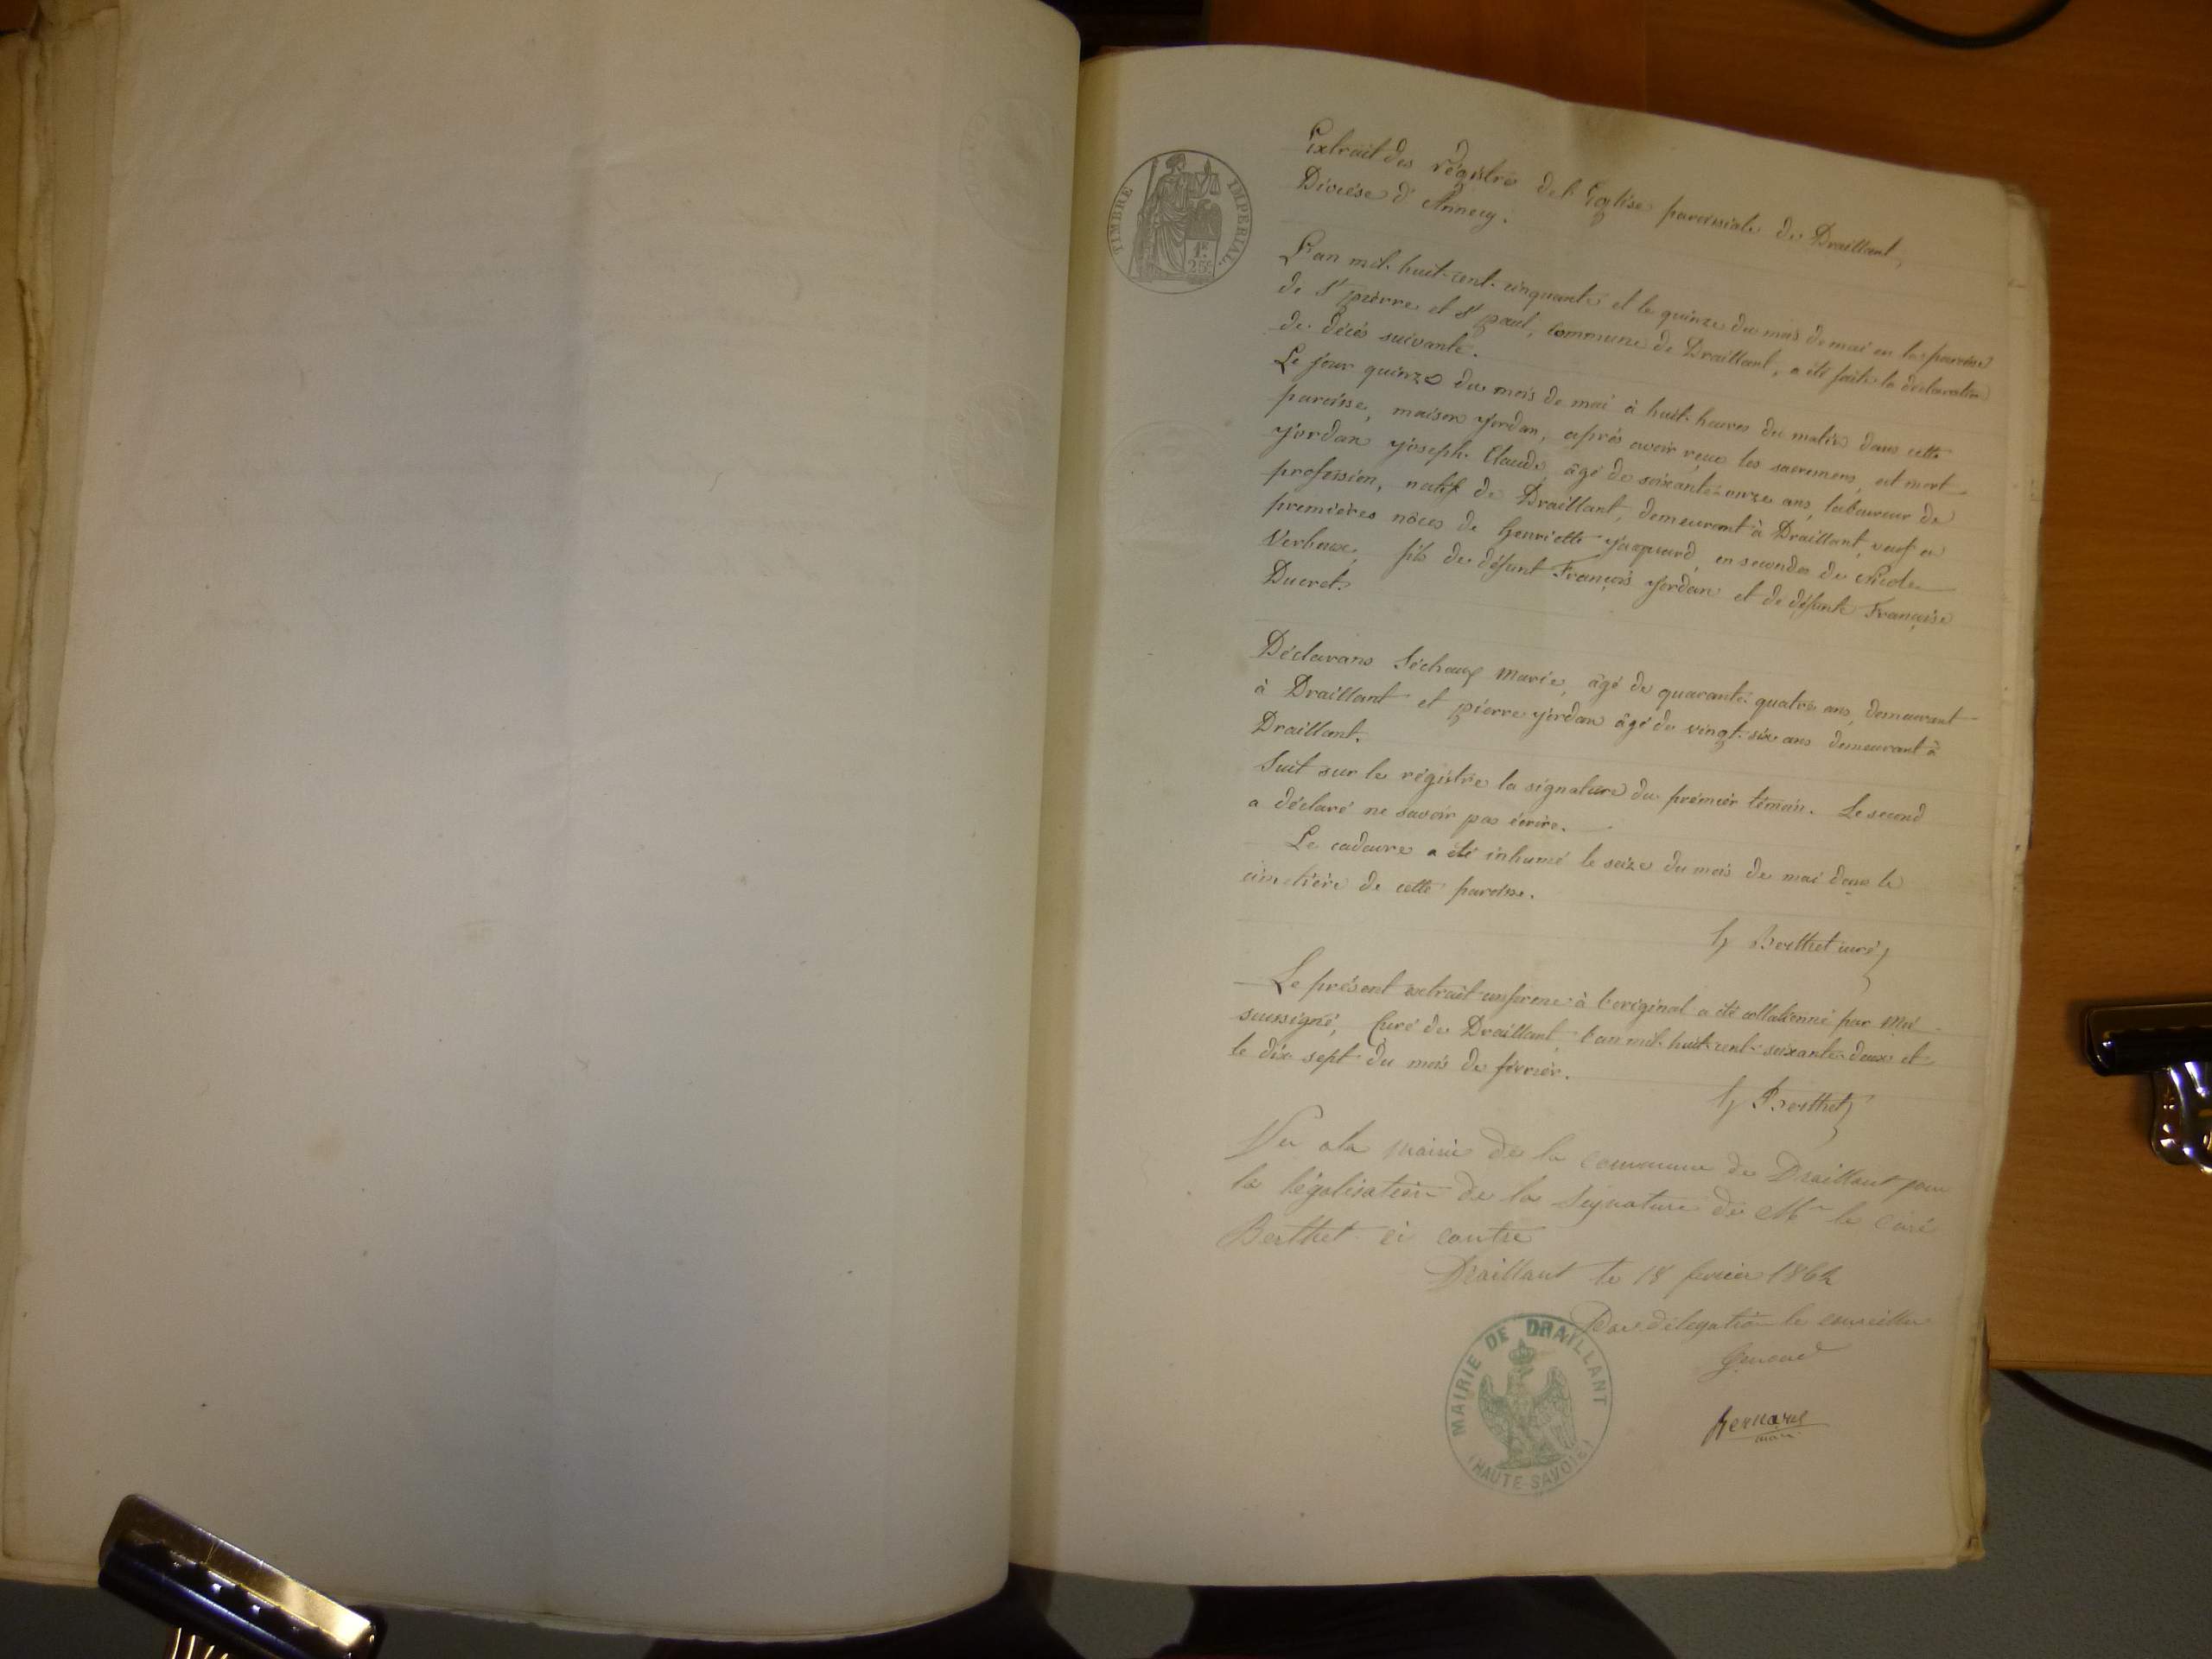 TIMBRE IMPERIAL.
1F.
25C
Extrait des régistre del Eglise paroissiale de Draillant,
Diocèse d'Annecy.
L'an mil-huit-cent-cinquante et le quinze du mois de mai en la paroisse
de St pierre et St paul, commune de Draillant, a été faite la déclaration
de décès suivante.
Le jour quinze du mois de mai à huit heures du matin dans cette
paroisse, maison Jordan, après avoir reçu les sacremens, est mort
Jordan Joseph Claude, âgé de soixante-onze ans, laboureur de
profession, natif de Draillant, demeurant à Draillant, veuf en
premières nôces de henriette Jacquard, en secondes de Nicole
Verboux, fils de défunt François Jordan et de défunte Françoise
Ducret.
Déclarans Séchaux Marie, âgé de quarante-quatre ans, demeurant
à Draillant et pierre Jordan âgé de vingt-six ans demeurant à
Draillant.
Suit sur le régistre la signature du prémier témoin. Le second
a déclaré ne savoir pas écrire.
Le cadavre a été inhumé le seize du mois de mai dans le
cimetière de cette paroisse.
Berthet curé
Le présent extrait conforme à l'original a été collationné par Moi
soussigné, Curé de Draillant, l'an mil-huit-cent-soixante-deux et
le dix sept du mois de février.
Berthet
Vu a la Mairie de la commune de Draillant pour
la légalisation de la Signature de Mr le Curé
Berthet ci contre
Draillant le 18 fevrier 1862
Par délégation le conseiller
MAIRIE DE DRAILLANT
(HAUTE-SAVOIE)